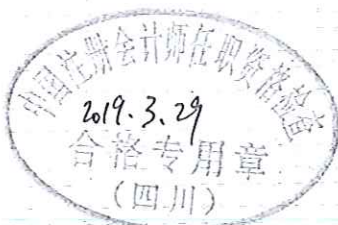 中国注册会计师任职资格检查
2019.3.29
合格专用章
(四川)